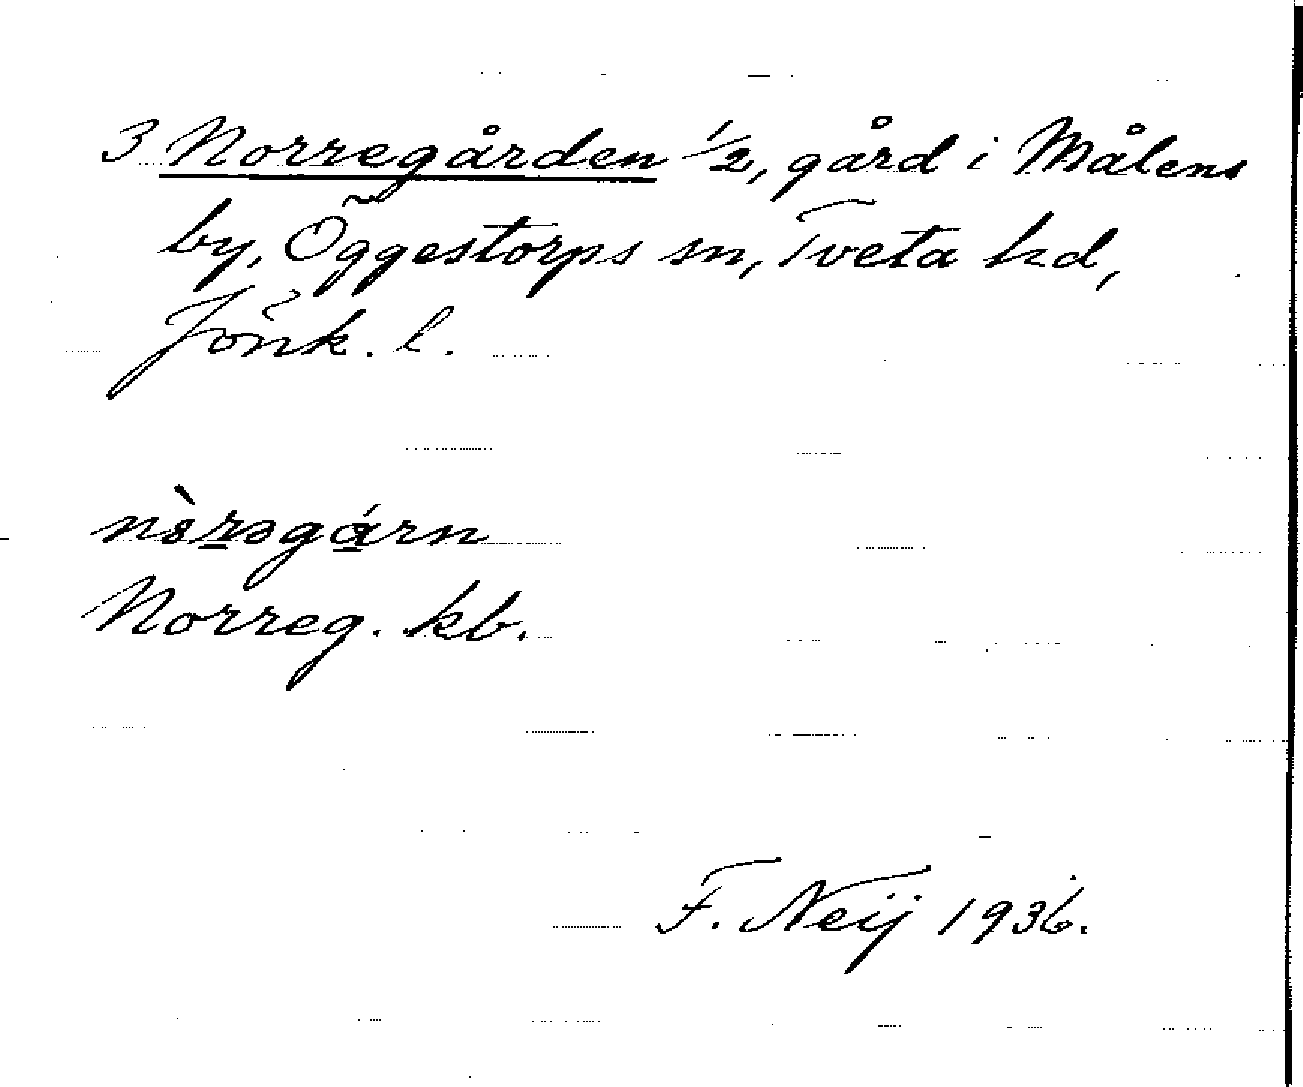 3 Norregården 1/2, gård i Målens
by, Öggestorps sn, Tveta hd,
Jönk. l.
nörəgárn
Norreg. kb.
F. Neij 1936.